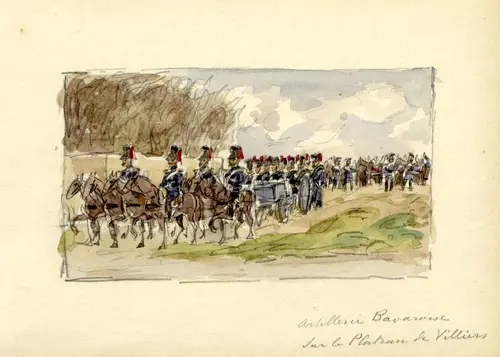 Artillerie Bavaroise
Sur le Plateau de Villiers